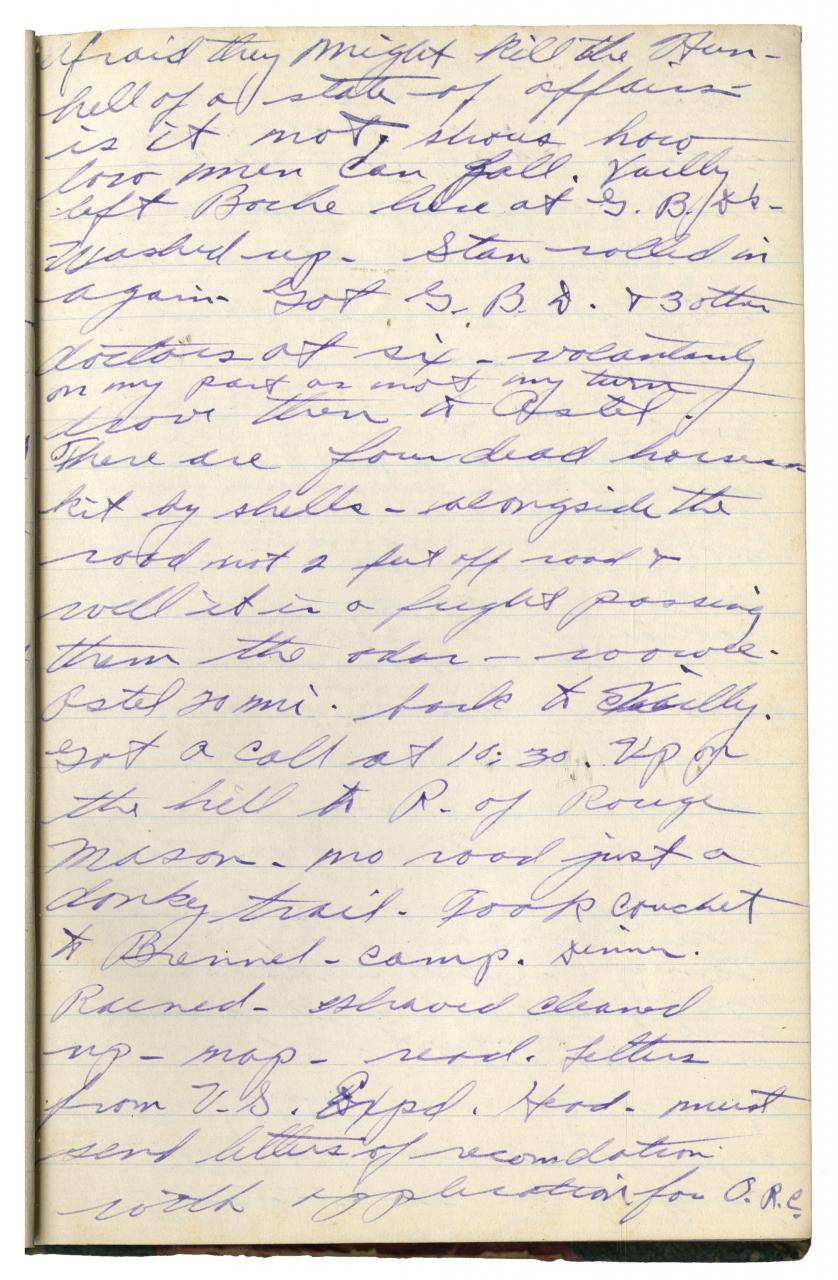 afraid they might kill the Hun-
hell of a state of affairs-
is it not, shows how
low men can fall. Vailly
left Boche here at G. B. D's-
washed up- Stan rolled in
again- Got G. B. D. & 3 other
doctors at six - volantarily
on my part as not my turn
drove them to Ostel.
There are four dead horses-
hit by shells - alongside the
road not 2 feet off road &
well it is a fright passing
them the odor - woowee.
Ostel 20 mi. back to Vailly.
Got a call at 10:30. Up on
the hill to R. of Rouge
Mason - no road just a
donky trail. Took couchet
to Brennel - camp. Dinner.
Rained - shaved cleaned
up - nap - read. Letters
from U.S. Expd. Head. must
send letters of recomdation
with application for O.R.C.